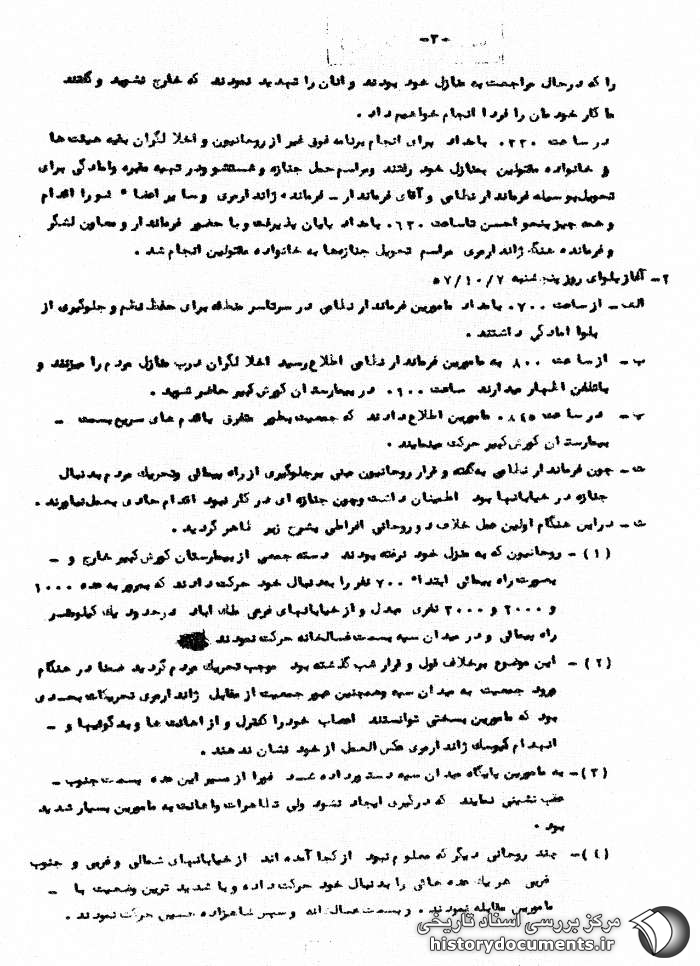 -۳-
را که درحال مراجعت به منازل خود بودند و آنان را تهدید نمودند که خارج نشوید و گفتند
ما کار خودمان را فردا انجام خواهیم داد .
در ساعت ۰۲۳۰ بامداد برای انجام برنامه فوق غیر از روحانیون و اخلالگران بقیه هیئت ها
و خانواده مقتولین بمنازل خود رفتند ومراسم حمل جنازه و شستشو ودر تهیه مقبره وآمادگی برای
تحویل بوسیله فرماندار نظامی و آقای فرماندار - فرمانده ژاندارمری وسایر اعضاء شورا اقدام
وهمه چیز بنحو احسن تاساعت ۰۶۳۰ بامداد پایان پذیرفت و با حضور فرماندار و معاون لشگر
و فرمانده هنگ ژاندارمری مراسم تحویل جنازه‌ها به خانواده مقتولین انجام شد .
۲- آغاز بلوای روز پنجشنبه ۵۷/۱۰/۷
الف - از ساعت ۰۷۰۰ بامداد مامورین فرماندار نظامی در سرتاسر منطقه برای حفظ نظم و جلوگیری از
بلوا آمادگی داشتند .
ب - از ساعت ۰۸۰۰ به مامورین فرماندار نظامی اطلاع رسید اخلالگران درب منازل مردم را میزنند و
باتلفن اظهار میدارند ساعت ۰۹۰۰ در بیمارستان کورش کبیر حاضر شوید .
پ - در ساعت ۰۸۴۵ مامورین اطلاع دادند که جمعیت بطور متفرق باقدم های سریع بسمت -
بیمارستان کورش کبیر حرکت مینمایند .
ت - چون فرماندار نظامی به گفته و قرار روحانیون مبنی برجلوگیری از راه پیمائی وتحریک مردم بدنبال
جنازه در خیابانها بود اطمینان داشت وچون جنازه ای در کار نبود اقدام حادی بعمل نیاورند .
ث - دراین هنگام اولین عمل خلاف دو روحانی افراطی بشرح زیر ظاهر گردید .
(۱) - روحانیون که به منزل خود نرفته بودند دسته جمعی از بیمارستان کورش کبیر خارج و -
بصورت راه پیمائی ابتداء ۷۰۰ نفر را بدنبال خود حرکت دادند که بمرور به عده ۱۰۰۰
و ۲۰۰۰ و ۳۰۰۰ نفری مبدل و از خیابانهای فرعی ملک آباد درحدود یک کیلومتر
راه پیمائی و در میدان سپه بسمت غسالخانه حرکت نمودند
(۲) - این موضوع برخلاف قول و قرار شب گذشته بود موجب تحریک مردم گردید ضمنا در هنگام
ورود جمعیت به میدان سپه وهمچنین عبور جمعیت از مقابل ژاندارمری تحریکات بحدی
بود که مامورین بسختی توانستند اعصاب خود را کنترل و از اهانت ها و بدگوئیها و -
انهدام کیوسک ژاندارمری عکس العمل از خود نشان ندهند .
(۳) - به مامورین پایگاه میدان سپه دستور داده شد فورا از مسیر این عده بسمت جنوب -
عقب نشینی نمایند که درگیری ایجاد نشود ولی تظاهرات واهانت به مامورین بسیار شدید
بود .
(۴) - چند روحانی دیگر که معلوم نبود از کجا آمده اند از خیابانهای شمالی و غربی و جنوب
غربی هر یک عده هائی را بدنبال خود حرکت داده و با شدید ترین وضعیت با -
مامورین مقابله نمودند . و بسمت غسالخانه و سپس شاهزاده حسین حرکت نمودند .
مرکز بررسی اسناد تاریخی
historydocuments.ir